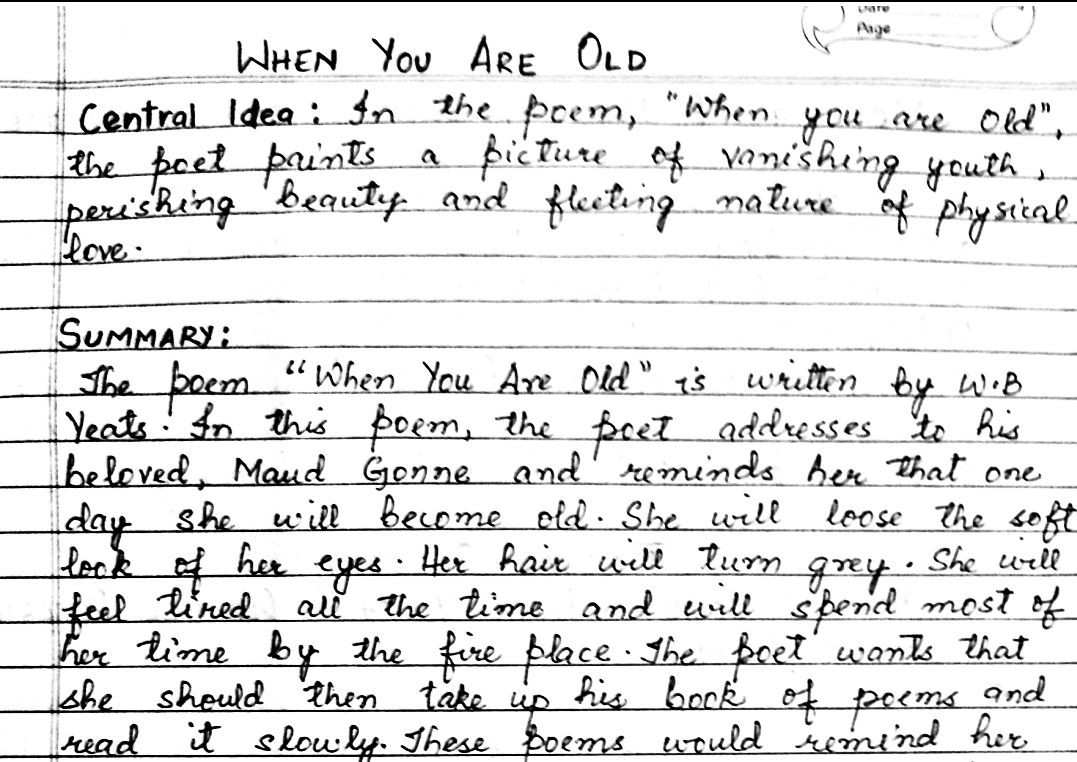 Date
Page
WHEN YOU ARE OLD
Central Idea: In the poem, "When you are old",
the poet paints a picture of vanishing youth,
perishing beauty and fleeting nature of physical
love.
SUMMARY:
The poem "When You Are Old" is written by W.B
Yeats. In this poem, the poet addresses to his
beloved, Maud Gonne and reminds her that one
day she will become old. She will loose the soft
look of her eyes. Her hair will turn grey. She will
feel tired all the time and will spend most of
her time by the fire place. The poet wants that
she should then take up his book of poems and
read it slowly. These poems would remind her